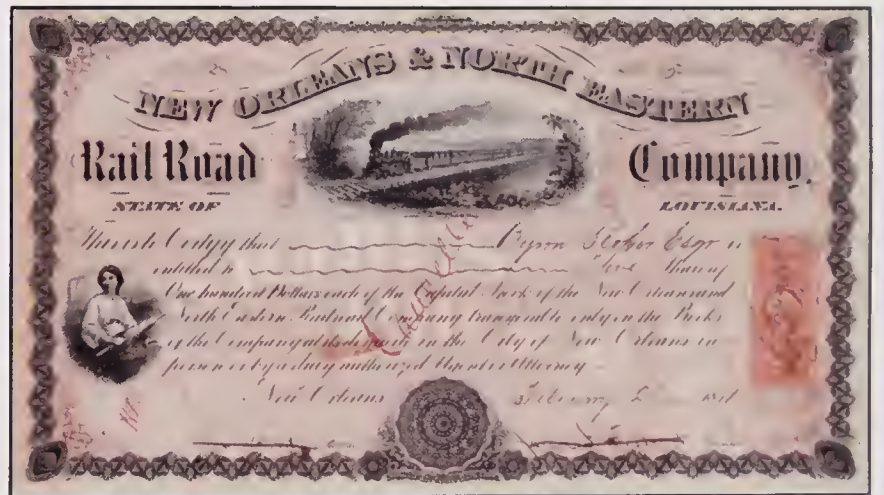 NEW ORLEANS & NORTH EASTERN
Rail Road Company,
STATE OF LOUISIANA.
This is to Certify that Byron Esqr is
entitled to Shares of
One hundred Dollars each of the Capital Stock of the New Orleans and
North Eastern Railroad Company transferable only on the Books
of the Company at its office in the City of New Orleans in
person or by a duly authorized Attorney
New Orleans February
Cancelled